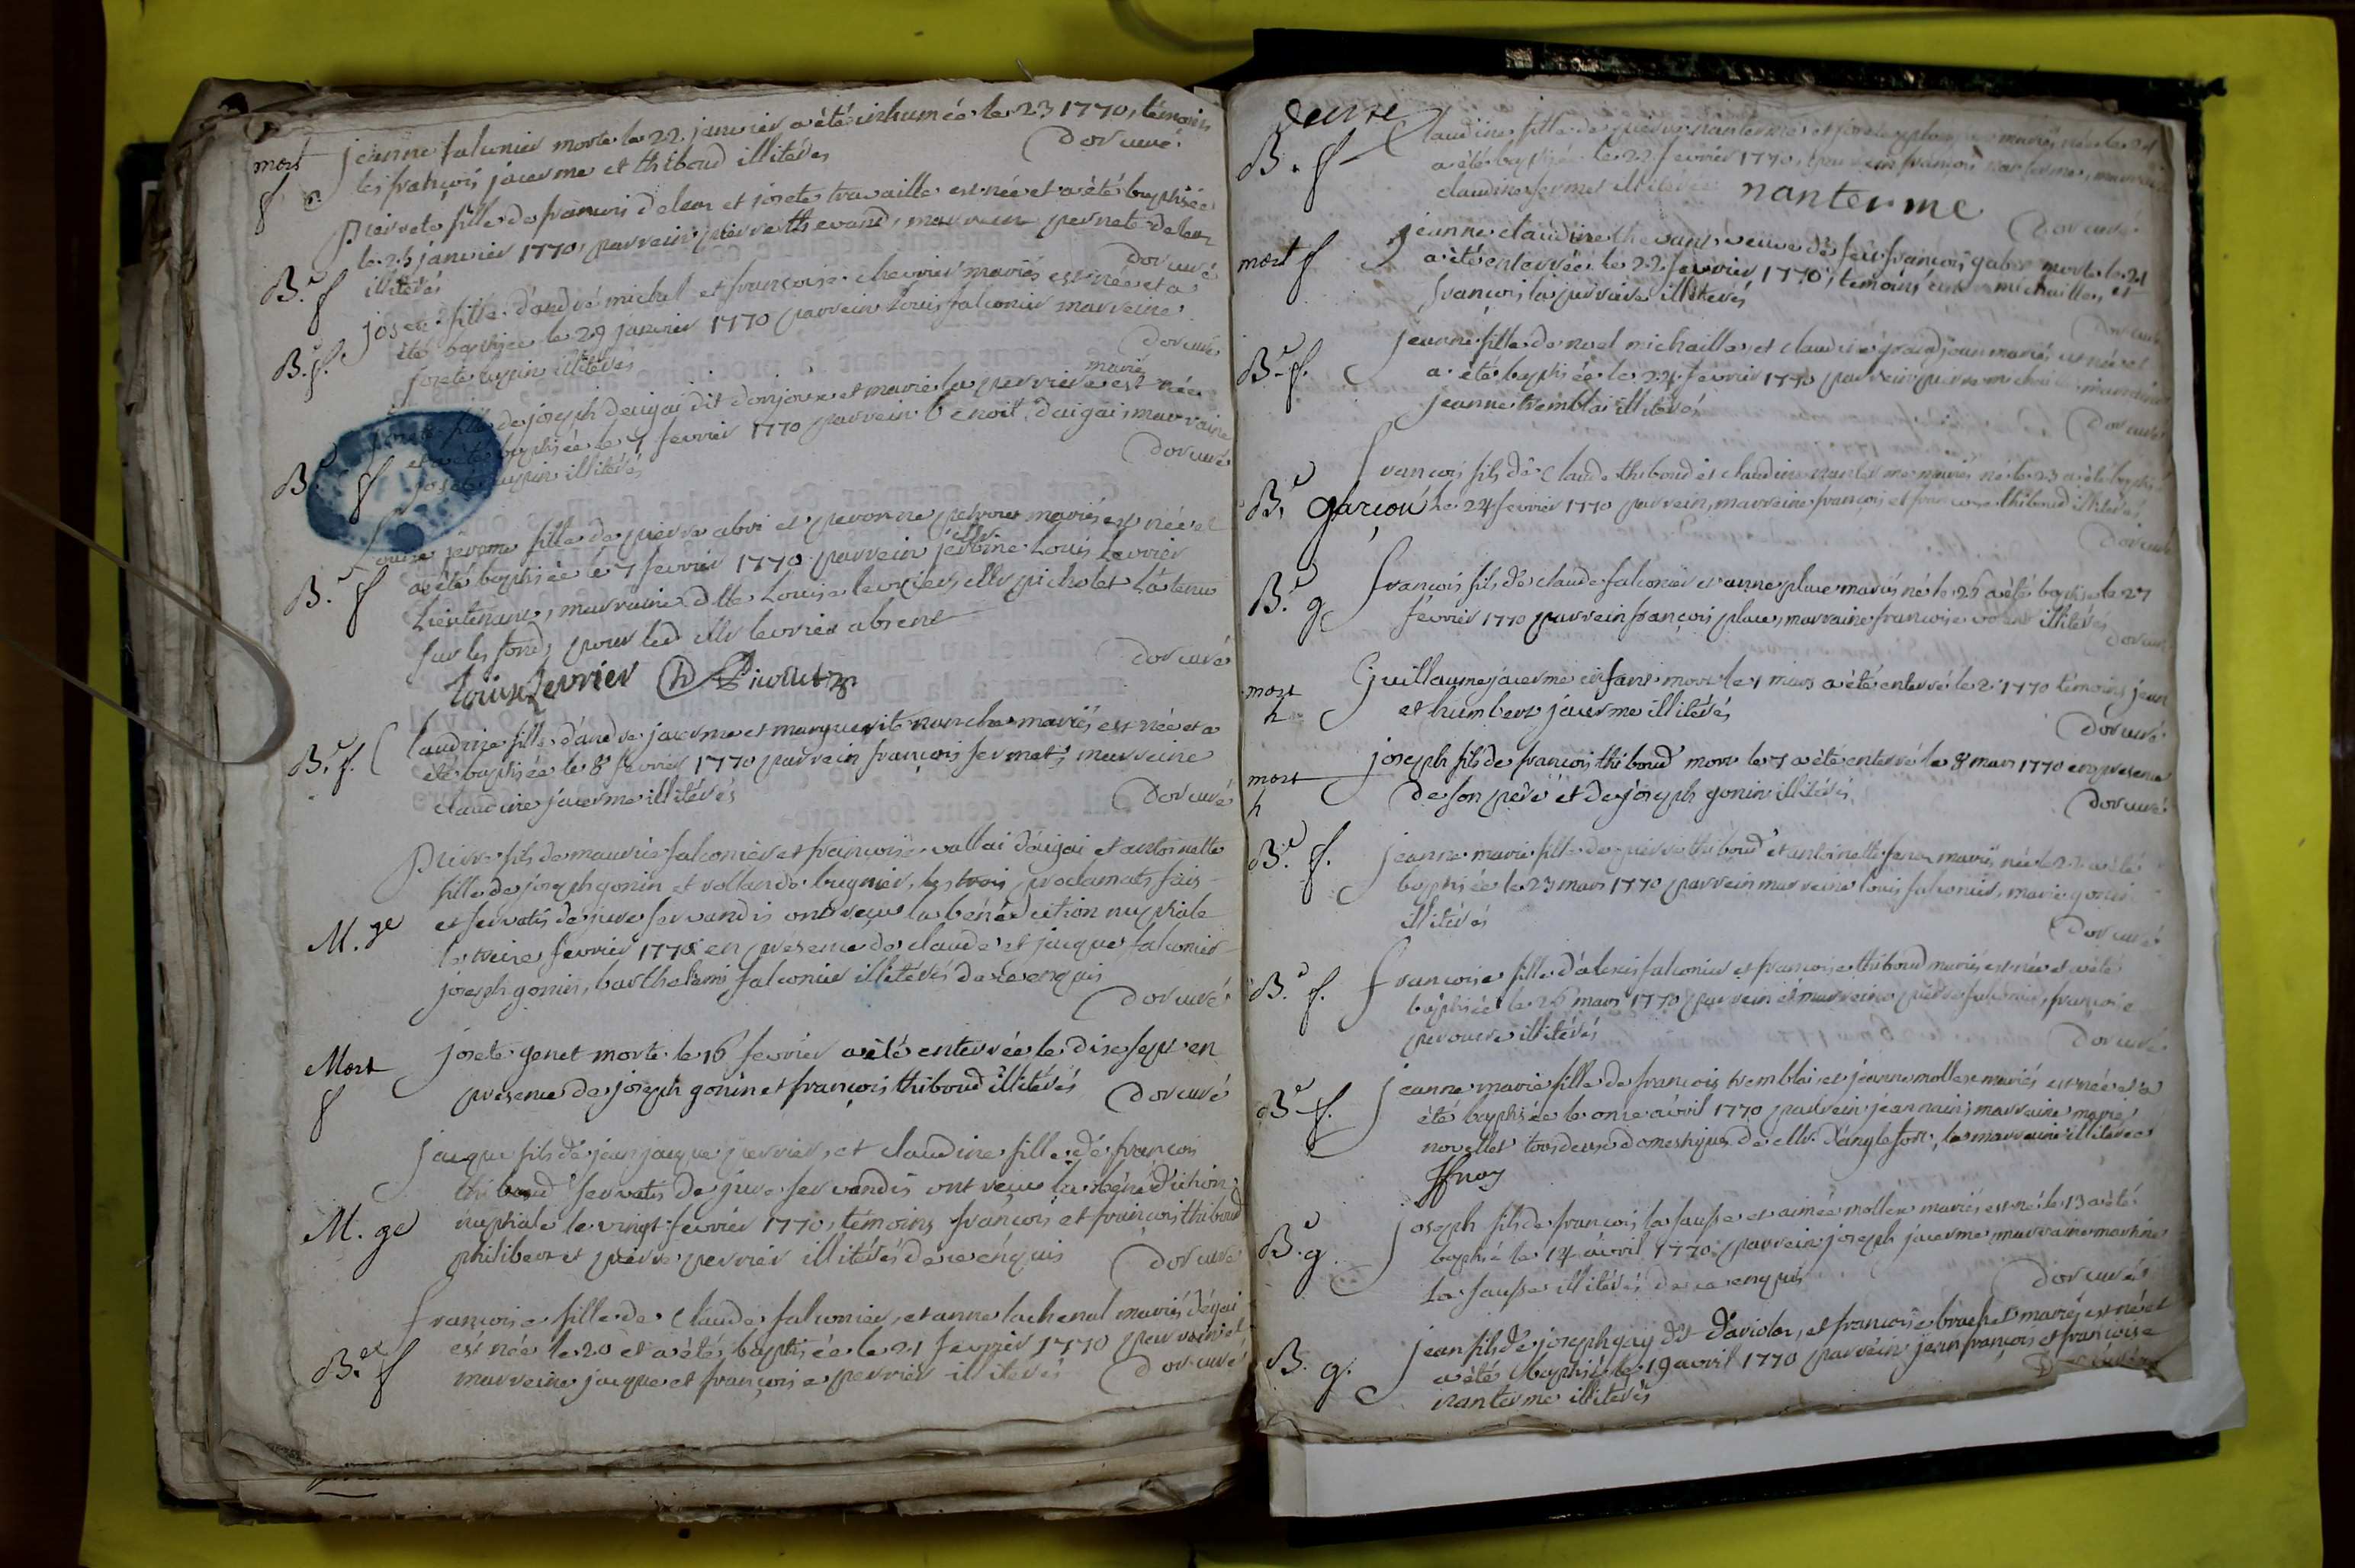 mort jeanne falconier morte le 22 janvier a été inhumée le 23 1770, témoins
f les françois jacerme et thiboud illiterés Dor curé
pierrete fille de françois delem et josete travaille est née et a été baptisée
le 25 janvier 1770, parrein pierre thevand, marreine pernete
B.e f illiterés Dor curé
josete fille d'andré michal et françoise chevrier mariés est née et a
B.e f. été baptisée le 29 janvier 1770 parrein Louis falconier marreine
josete illiterés Dor curé
marie
fille de joseph daigai dit donjoux et marie la perriere est née
B.e f et a été baptisée le 1 fevrier 1770 parrein benoit daigai, marraine
josete illiterés Dor curé
jerome fille de pierre abri et peronne mariés est née et
B.e f a été baptisée le 7 fevrier 1770 parrein jérôme Louis Levrier
Lieutenant, marraine dlle Louise levrier, pichollet l'a tenue
sur les fonds pour led levrier absent
Louise Levrier Dor curé
B.e f. Claudine fille d'andre jacerme et marguerite mariés est née et a
été baptisée le 8 fevrier 1770 parrein françois fermet, marreine
claudine jacerme illiterés Dor curé
Pierre fils de maurice falconier et françoise vallai d'aigai et antoinette
fille de joseph gonin et rollande bugnier, les trois proclamats fais
M. ge et servatis de jure servandis ont reçus la bénédiction nuptiale
le treize fevrier 1770 en présence de claude et jacque falconier
joseph gonin, barthelemi falconier illiterés de ce enquis
Dor curé
Mort josete genet morte le 16 fevrier a été enterrée le dixsept en
f présence de joseph gonin et françois thiboud illiterés Dor curé
jacque fils de jean jacque perrier, et claudine fille de françois
thiboud servatis de jure servandis ont reçu la bénédiction
M. ge nuptiale le vingt fevrier 1770, témoins françois et françois thiboud
philibert et pierre perrier illiterés de ce enquis Dor curé
françoise fille de Claude falconier, et anne lachenal mariés d'égai
B.e f est née le 20 et a étés baptisée le 21 fevrier 1770 parrein et
marreine jacque et françoise perrier illiterés Dor curé
B.e f Claudine fille de pierre nanterme et mariés née le 21
a été baptisée le 22 fevrier 1770, parrein françois nanterme, marraine
claudine fermet illiterés nanterme
Dor curé
mort f jeanne claudine thevand veuve de feu françois morte le 21
a été enterrée le 22 fevrier 1770, témoins michaille, et
françois la perriere illiterés
Dor curé
B.e f. jeanne fille de noel michaille, et claudine grandjean mariés est née et
a été baptisée le 24 fevrier 1770 parrein pierre michaille marraine
jeanne tremblai illiterés
Dor curé
François fils de Claude thiboud et claudine nanterme mariés né le 23 a été baptisé
B.e garçon le 24 fevrier 1770 parrein, marreine françois et françoise thiboud illiterés
Dor curé
B.e g françois fils de claude falconier et anne place mariés né le 26 a été baptisé le 27
fevrier 1770 parrein françois place, marraine françoise illiterés
Dor curé
mort Guillaume jacerme enfant mort le 1 mars a été enterré le 2 1770 témoins jean
h et humbert jacerme illiterés
Dor curé
mort joseph fils de françois thiboud mort le 7 a été enterré le 8 mars 1770 en présence
h de son père et de joseph gonin illiterés Dor curé
B.e f. jeanne marie fille de pierre thiboud et antoinette mariés née le 22 a été
baptisée le 23 mars 1770 parrein marreine louis falconier, marie gonin
illiterés
Dor curé
B.e f. Françoise fille d'alexis falconier et françoise thiboud mariés est née et a été
baptisée le 26 mars 1770 parrein et marreine pierre falconier, françoise
perouse illiterés
Dor curé
B.e f. jeanne marie fille de françois tremblai et jeanne mollex mariés est née et a
été baptisée le onze avril 1770 parrein jean nain, marraine marie
novellet tous deux domestiques de d'anglefort, la marraine illiterée
B.e g. joseph fils de françois la sausse et aimée mollex mariés est né le 13 a été
baptisé le 14 avril 1770, parrein joseph jacerme marraine
la sausse illiterés de ce enquis
Dor curé
B. g. jean fils de joseph gay dit et françoise brachet mariés est né et
a étés baptisé le 19 avril 1770 parrein jean françois et françoise
nanterme illiterés Dor curé